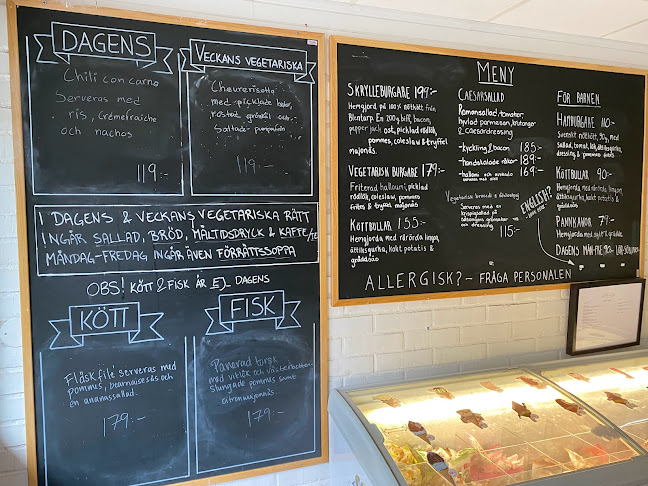 DAGENS
Chili con carne
Serveras med
ris, crémefraiche
och nachos
119:-
VECKANS VEGETARISKA
med picklade
rostad
119:-
I DAGENS & VECKANS VEGETARISKA RÄTT
INGÅR SALLAD, BRÖD, MÅLTIDSDRYCK & KAFFE/TE
MÅNDAG-FREDAG INGÅR ÄVEN FÖRRÄTTSSOPPA
OBS! KÖTT & FISK ÄR EJ DAGENS
KÖTT
Fläskfile serveras med
pommes, bearnaisesås och
en ananassallad.
179:-
FISK
Panerad torsk
med vitlök och västerbotten-
slungade pommes samt
citronmajonnäs.
179:-
MENY
SKRYLLEBURGARE 199:-
Hemgjord på 100% nötkött från
Blentarp. En 200g biff, bacon,
pepper jack ost, picklad rödlök,
pommes, coleslaw & tryffel
majonäs.
VEGETARISK BURGARE 179:-
Friterad halloumi, picklad
rödlök, coleslaw, pommes
frites & tryffel majonäs
KÖTTBULLAR 155:-
Hemgjorda med rårörda lingon,
ättiksgurka, kokt potatis &
gräddsås
CAESARSALLAD
Romansallad, tomater,
hyvlad parmesan, krutonger
& caesardressing
-kyckling & bacon 185:-
-handskalade räkor 189:-
-halloumi och avokado 169:-
Serveras med en
dressing 115:-
ENGLISH?
FÖR BARNEN
HAMBURGARE 110:-
Svenskt nötkött, 90g, med
sallad, tomat, lök, ättiksgurka,
dressing & pommes frites
KÖTTBULLAR 90:-
Hemgjorda med rårörda lingon,
ättiksgurka, kokt potatis &
gräddsås
PANNKAKOR 79:-
Hemgjorda med sylt & grädde.
DAGENS MÅN-FRE 90:-
ALLERGISK? - FRÅGA PERSONALEN